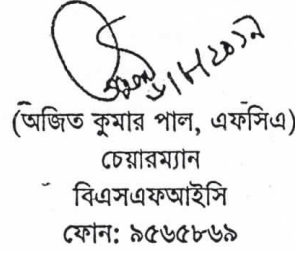 (অজিত কুমার পাল, এফসিএ)
চেয়ারম্যান
বিএসএফআইসি
ফোন: ৯৫৬৫৮৬৯